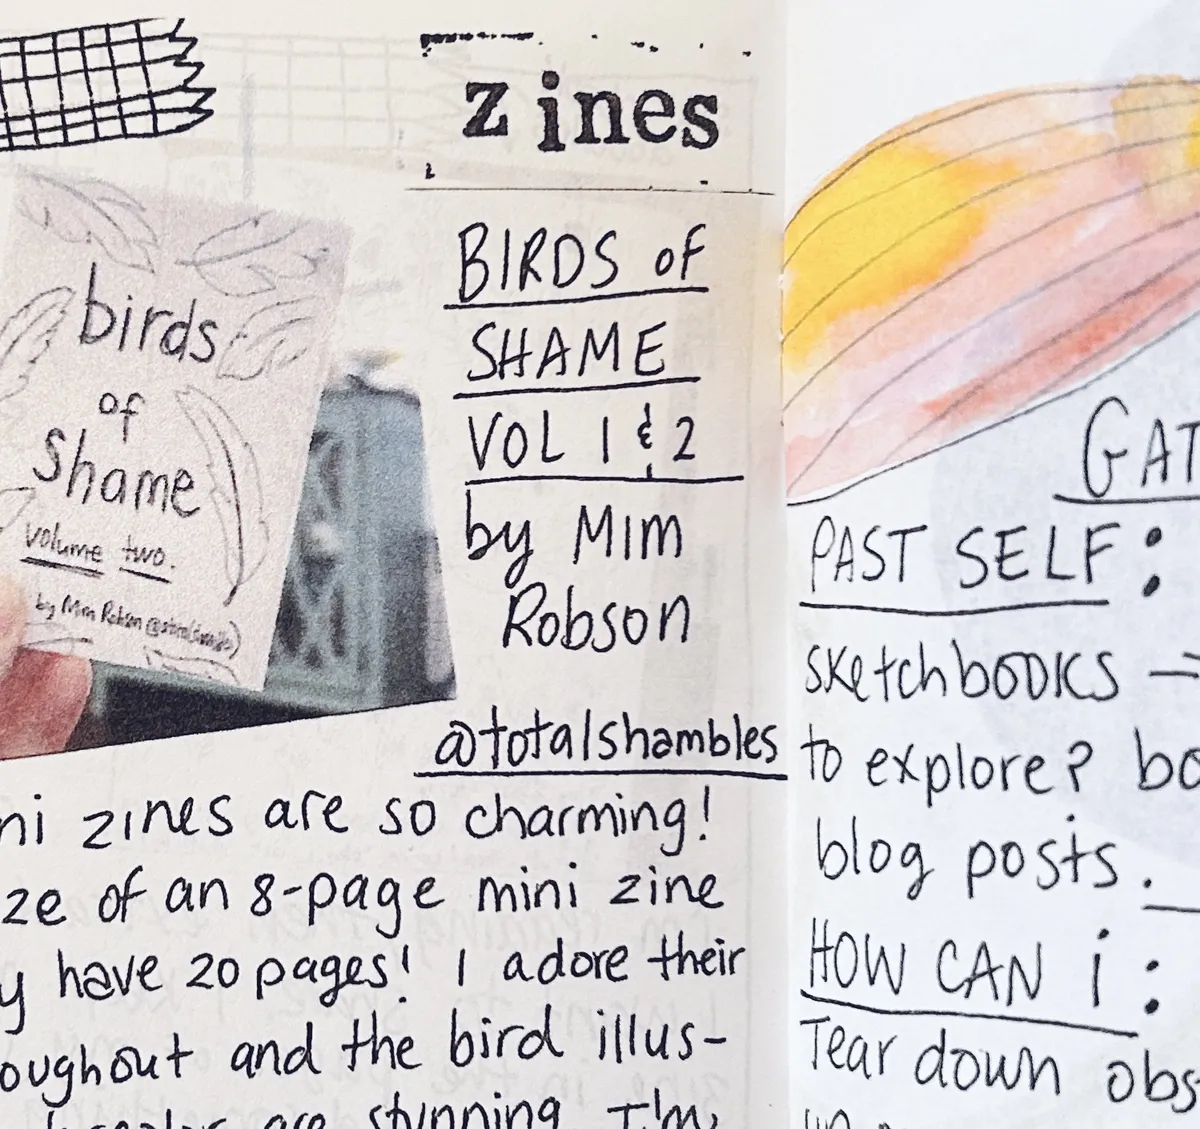 zines
birds
of
shame
volume two.
by Mim Robson
BIRDS of
SHAME
VOL 1 & 2
by MIM
ROBSON
@totalshambles
ni zines are so charming!
ze of an 8-page mini zine
y have 20 pages! I adore their
oughout and the bird illus-
are stunning. I'm
GAT
PAST SELF:
sketchbooks →
to explore? bo
blog posts.
HOW CAN i:
Tear down obs